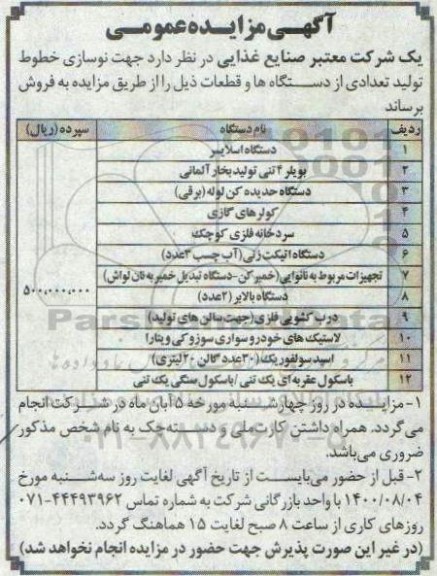 آگهی مزایده عمومی
یک شرکت معتبر صنایع غذایی در نظر دارد جهت نوسازی خطوط
تولید تعدادی از دستگاه ها و قطعات ذیل را از طریق مزایده به فروش
برساند
ردیف نام دستگاه سپرده (ریال)
۱ دستگاه اسلایسر
۲ بویلر ۴ تنی تولید بخار آلمانی
۳ دستگاه حدیده کن لوله (برقی)
۴ کولرهای گازی
۵ سردخانه فلزی کوچک
۶ دستگاه اتیکت زنی (آب چسب ۳عدد)
۷ تجهیزات مربوط به نانوایی (خمیر کن -دستگاه تبدیل خمیر به نان لواش) ۵۰۰,۰۰۰,۰۰۰
۸ دستگاه بالابر (۲عدد)
۹ درب کشویی فلزی (جهت سالن های تولید)
۱۰ لاستیک های خودرو سواری سوزوکی ویتارا
۱۱ اسید سولفوریک (۳۰عدد گالن ۲۰ لیتری)
۱۲ باسکول عقربه ای یک تنی /باسکول سنگی یک تنی
۱- مزایده در روز چهارشنبه مورخه ۵ آبان ماه در شرکت انجام
می گردد. همراه داشتن کارت ملی و دسته چک به نام شخص مذکور
ضروری می باشد.
۲- قبل از حضور می بایست از تاریخ آگهی لغایت روز سه شنبه مورخ
۱۴۰۰/۰۸/۰۴ با واحد بازرگانی شرکت به شماره تماس ۴۴۴۹۳۹۶۲-۰۷۱
روزهای کاری از ساعت ۸ صبح لغایت ۱۵ هماهنگ گردد.
(در غیر این صورت پذیرش جهت حضور در مزایده انجام نخواهد شد)